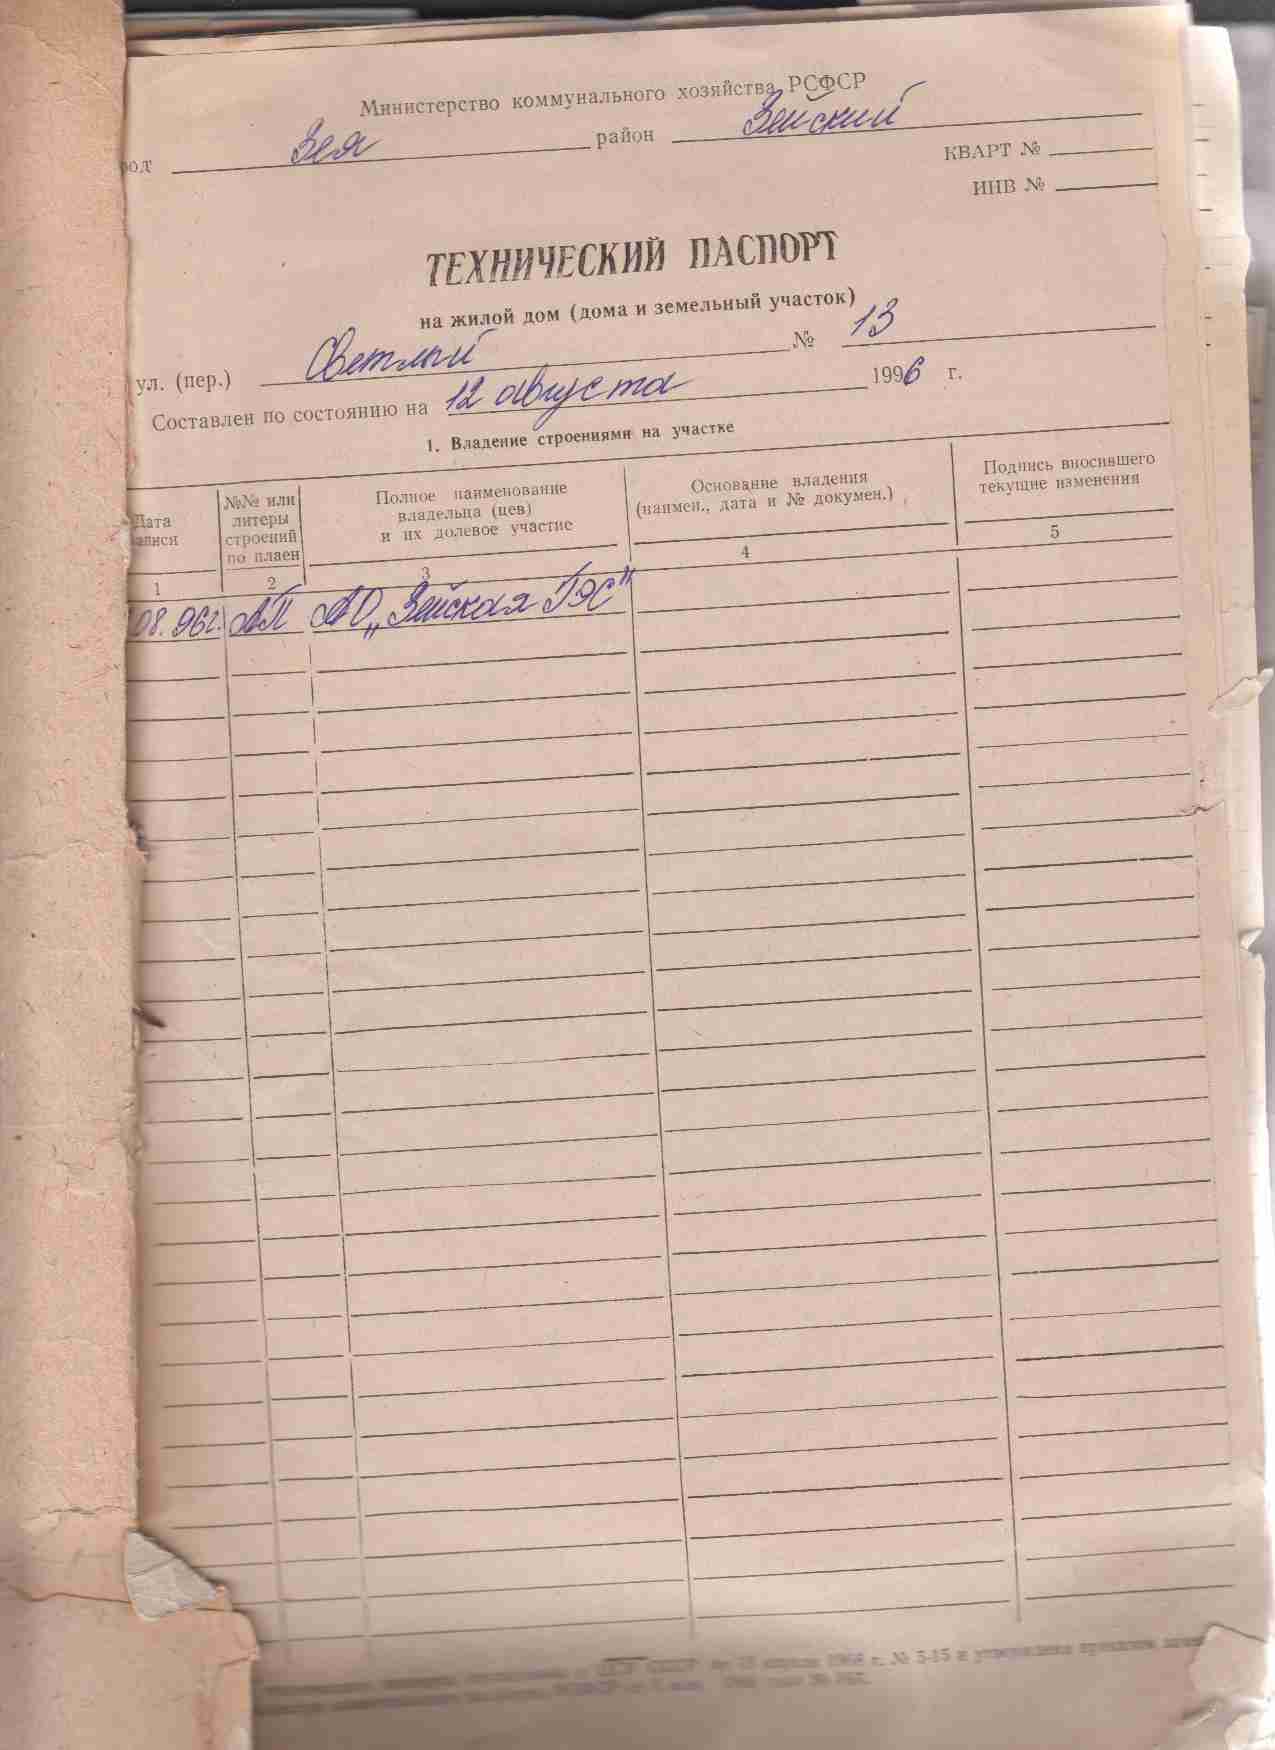 Министерство коммунального хозяйства РСФСР
род Зея район Зейский
КВАРТ №
ИНВ №
ТЕХНИЧЕСКИЙ ПАСПОРТ
на жилой дом (дома и земельный участок)
ул. (пер.) Светлый № 13
Составлен по состоянию на 12 августа 1996 г.
1. Владение строениями на участке
Дата
записи
№№ или
литеры
строений
по плаен
Полное наименование
владельца (цев)
и их долевое участие
Основание владения
(наимен., дата и № докумен.)
Подпись вносившего
текущие изменения
1 2 3 4 5
08.96г. АП АО „Зейская ГЭС"
1968 г. № 5-15 и утверждена